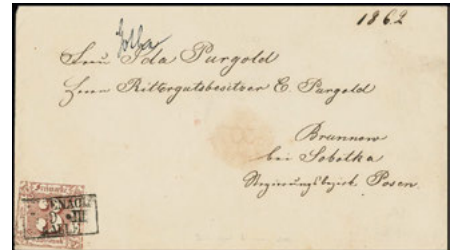 1862
Gotha
Frau Ida Purgold
Herrn Rittergutsbesitzer C. Purgold
Brunnow
bei Sobotka
Regierungsbezirk Posen.